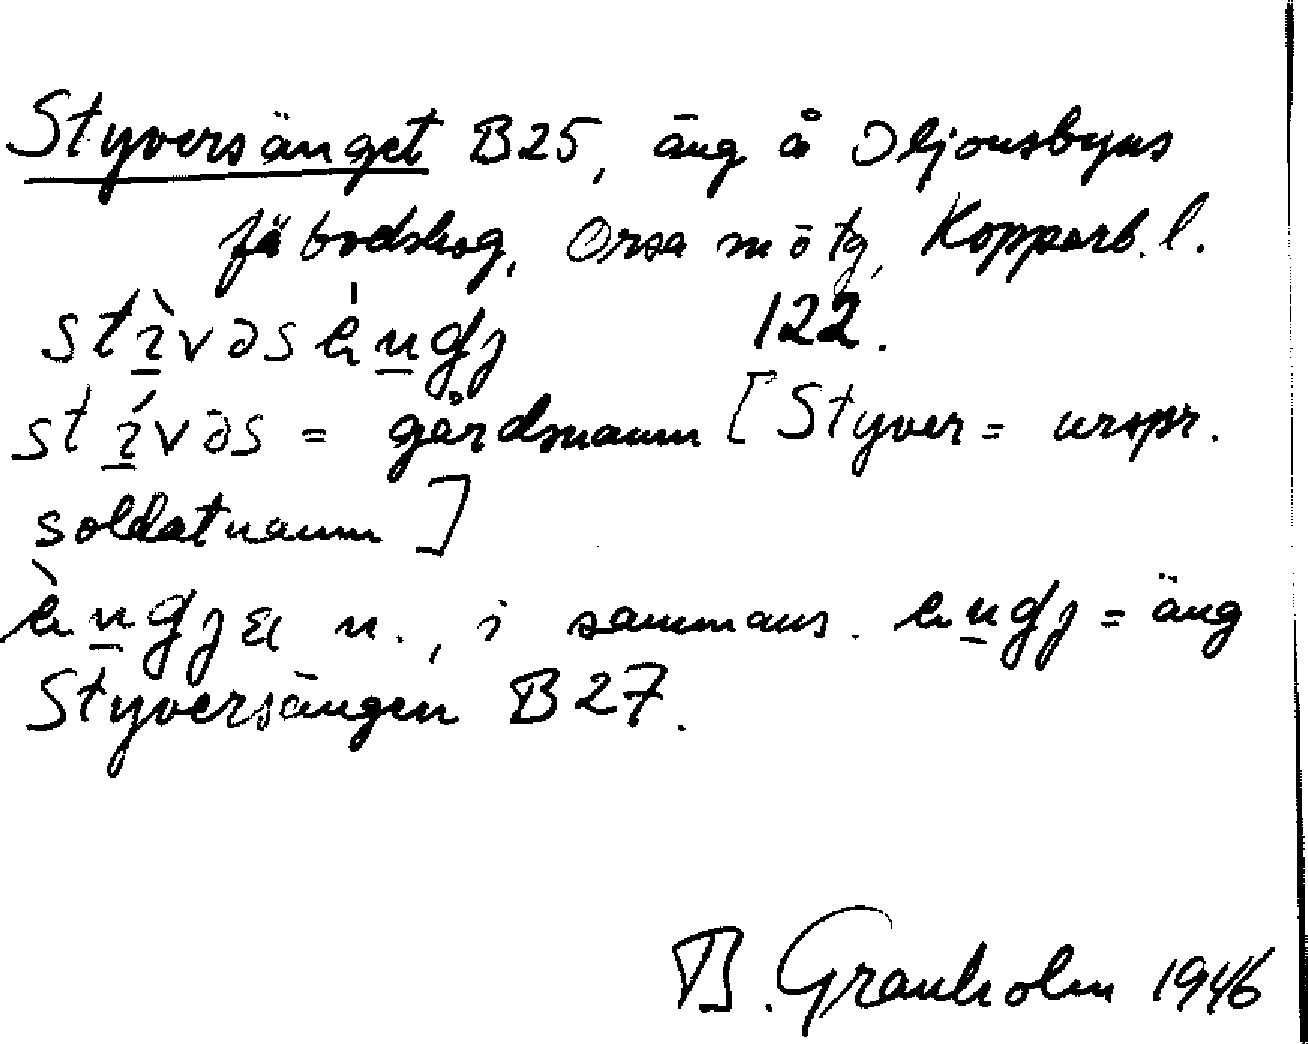 Styversänget B25, äng å Oljonsbyns
fäbodskog, Orsa sn ö tg, Kopparb. l.
122.
= gårdsnamn [Styver = urspr.
soldatnamn]
n., i sammans. = äng
Styversängen B27.
B. Granholm 1946